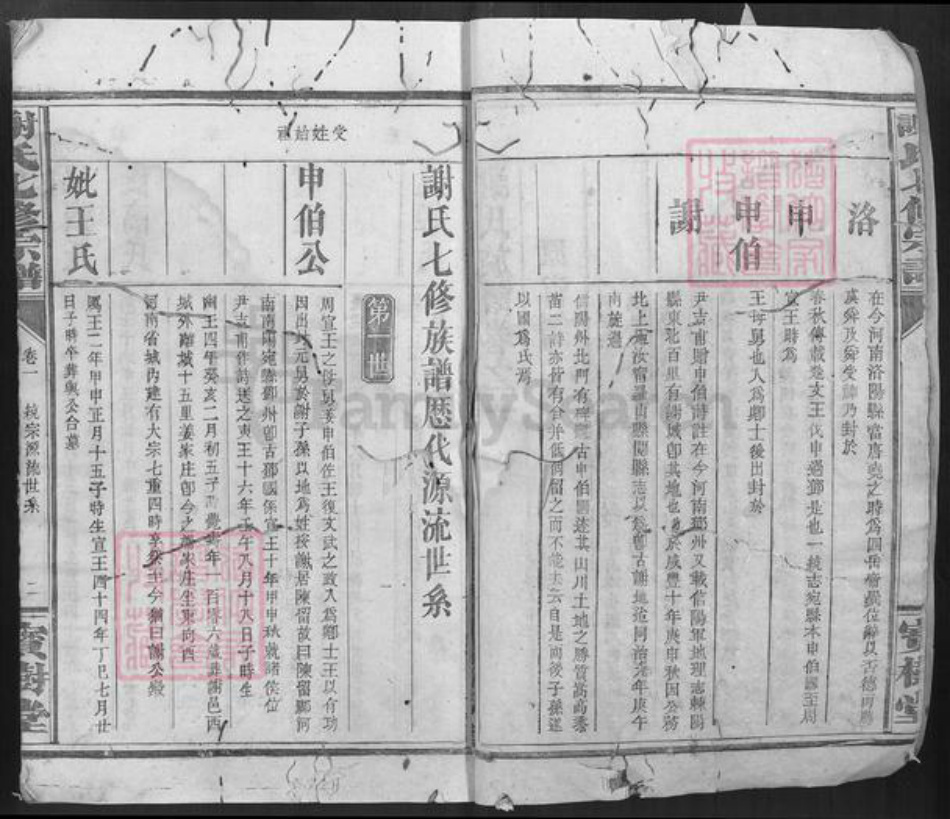 謝氏七修宗譜
寶樹堂
洛
在今河南洛陽縣當唐堯之時為四岳
虞舜及舜受禪乃封於
申
春秋傳載楚文王伐申過鄧是也一統志宛縣本申伯國至周
宣王時為
申伯
王母舅也入為卿士後出封於
謝
尹吉甫贈申伯詩註在今河南鄧州又載信陽軍地理志棘陽
縣東北百里有謝城卽其地也
於咸豐十年庚申秋因公務
北上過汝甯羅山縣閱縣志以為卽古謝地迨同治元年庚午
南旋過
信陽州北門有碑題古申伯國述其山川土地之勝賞嵩高黍
苗二詩亦皆有合并低徊留之而不能去云自是而後子孫遂
以國為氏焉
謝氏七修族譜歷代源流世系
第一世
受姓始祖
申伯公
周宣王之母舅姜申伯佐王復文武之政入為卿士王以有功
因出封元舅於謝子孫以地為姓按謝居陳留故曰陳留郡河
南南陽宛縣鄧州卽古鄧國係宣王十年甲申秋就諸侯位
尹吉甫作詩送之 王十六年 午八月十八日子時生
幽王四年癸亥二月初五子 年一百 六歲葬謝邑西
城外離城十五里姜家庄卽今之 家庄坐東向西
河南省城內建有大宗七重四時享祭至今猶曰謝公殿
妣王氏
厲王二年甲申正月十五子時生宣王四十四年丁巳七月廿
日子時卒葬與公合墓
謝氏七修宗譜
卷一
統宗源流世系
二
寶樹堂
FamilySearch